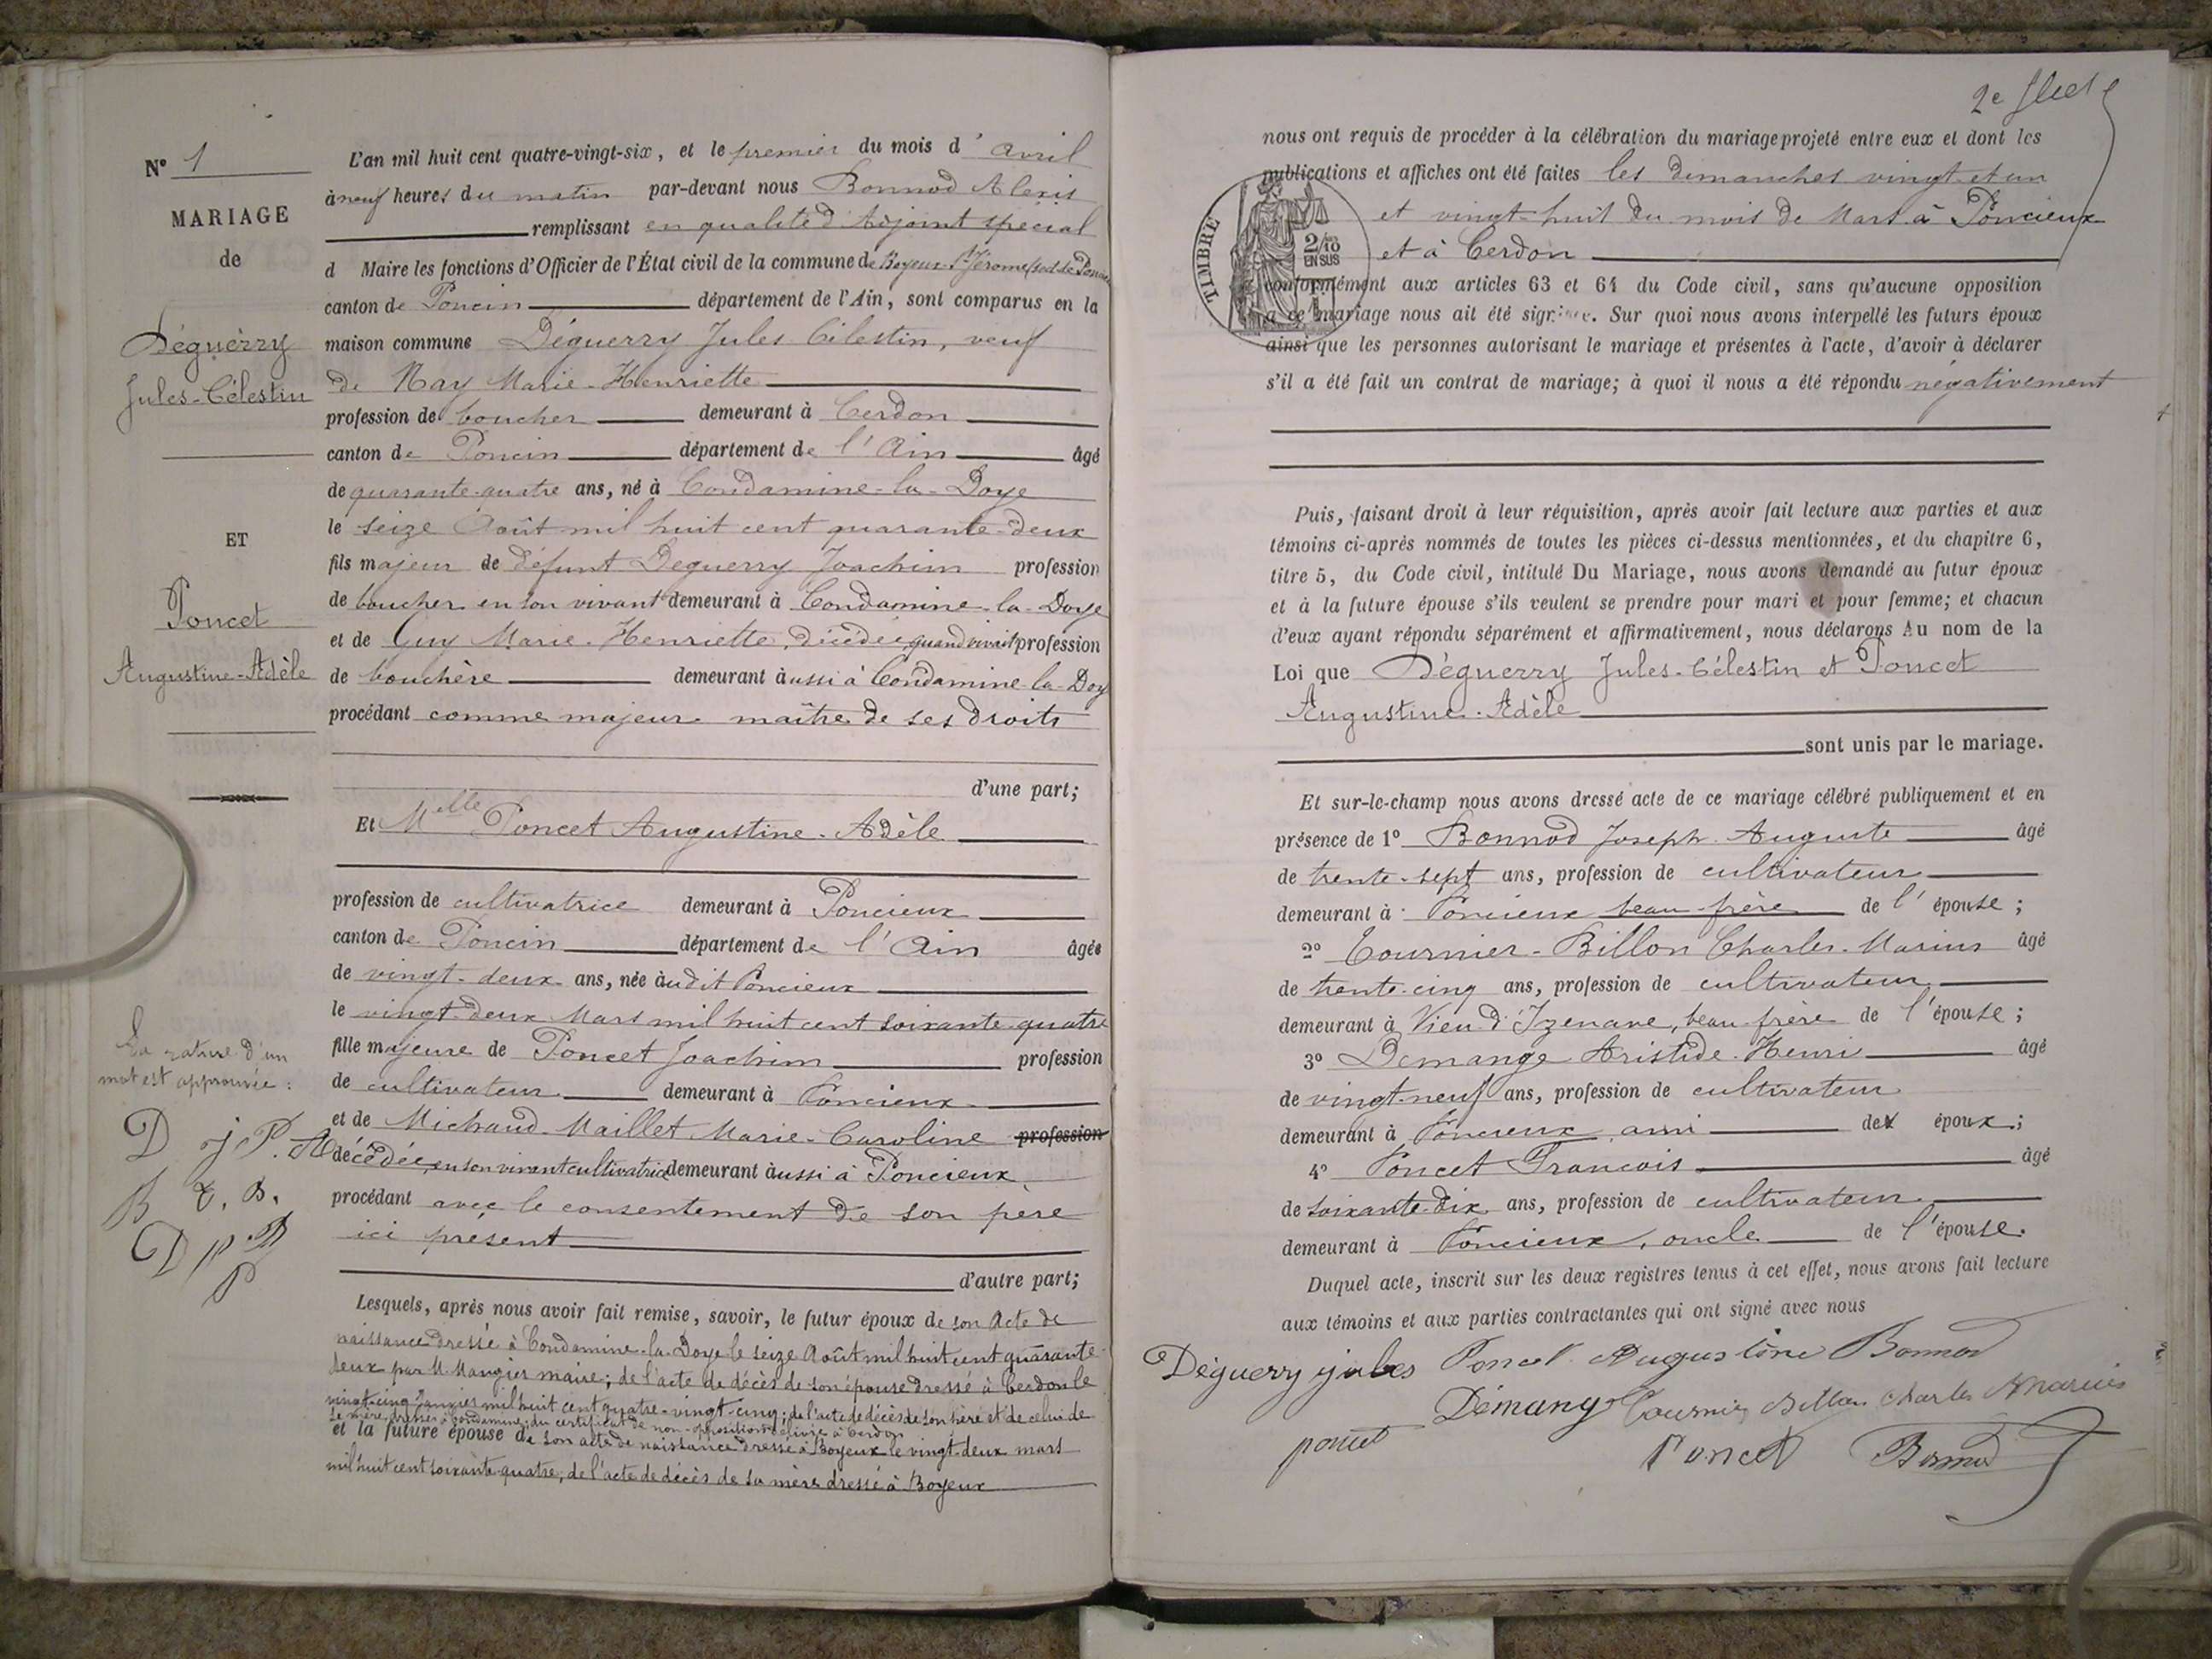 N° 1
MARIAGE
de
Déguerry
Jules-Célestin
ET
Poncet
Augustine-Adèle
La rature d'un
mot est approuvée :
D j P. A
B T. B.
D P B
P
L'an mil huit cent quatre-vingt-six, et le premier du mois d'avril
à neuf heures du matin par-devant nous Bonnod Alexis
remplissant en qualité d'Adjoint spécial
d Maire les fonctions d'Officier de l'État civil de la commune de Boyeux-St Jérome
canton de Poncin département de l'Ain, sont comparus en la
maison commune Déguerry Jules Célestin, veuf
de Ray Marie-Henriette
profession de boucher demeurant à Cerdon
canton de Poncin département de l'Ain âgé
de quarante-quatre ans, né à Condamine-la-Doye
le seize Août mil huit cent quarante-deux
fils majeur de défunt Deguerry Joachim profession
de boucher en son vivant demeurant à Condamine-la-Doye
et de Guy Marie-Henriette, décédée, quand vivait profession
de bouchère demeurant à aussi à Condamine-la-Doy
procédant comme majeur maître de ses droits
d'une part;
Et Melle Poncet Augustine-Adèle
profession de cultivatrice demeurant à Poncieux
canton de Poncin département de l'Ain âgée
de vingt-deux ans, née à udit Poncieux
le vingt-deux Mars mil huit cent soixante quatre
fille majeure de Poncet Joachim profession
de cultivateur demeurant à Poncieux
et de Michaud-Maillet Marie-Caroline profession
décédée, en son vivant cultivatrice demeurant à aussi à Poncieux
procédant avec le consentement de son père
ici présent
d'autre part;
Lesquels, après nous avoir fait remise, savoir, le futur époux de son Acte de
naissance dressé à Condamine-la-Doye le seize Août mil huit cent quarante-
deux par M. Mangier maire; de l'acte de décès de son épouse dressé à Cerdon le
vingt-cinq Janvier mil huit cent quatre-vingt-cinq; de l'acte de décès de son père et de celui de
sa mère dressés à Condamine; du certificat de non-opposition délivré à Cerdon
et la future épouse de son acte de naissance dressé à Boyeux le vingt-deux mars
mil huit cent soixante-quatre, de l'acte de décès de sa mère dressé à Boyeux
2e
nous ont requis de procéder à la célébration du mariage projeté entre eux et dont les
publications et affiches ont été faites les dimanches vingt et un
et vingt-huit du mois de Mars à Poncieux
et à Cerdon
TIMBRE
2/10
EN SUS
conformément aux articles 63 et 64 du Code civil, sans qu'aucune opposition
à ce mariage nous ait été signifiée. Sur quoi nous avons interpellé les futurs époux
ainsi que les personnes autorisant le mariage et présentes à l'acte, d'avoir à déclarer
s'il a été fait un contrat de mariage; à quoi il nous a été répondu négativement
Puis, faisant droit à leur réquisition, après avoir fait lecture aux parties et aux
témoins ci-après nommés de toutes les pièces ci-dessus mentionnées, et du chapitre 6,
titre 5, du Code civil, intitulé Du Mariage, nous avons demandé au futur époux
et à la future épouse s'ils veulent se prendre pour mari et pour femme; et chacun
d'eux ayant répondu séparément et affirmativement, nous déclarons Au nom de la
Loi que Déguerry Jules-Célestin et Poncet
Augustine-Adèle
sont unis par le mariage.
Et sur-le-champ nous avons dressé acte de ce mariage célébré publiquement et en
présence de 1° Bonnod Joseph-Auguste âgé
de trente-sept ans, profession de cultivateur
demeurant à Poncieux beau-frère de l'épouse;
2° Tournier-Billon Charles-Marius âgé
de trente-cinq ans, profession de cultivateur
demeurant à Vieu-d'Izenave, beau-frère de l'épouse;
3° Demange Aristide-Henri âgé
de vingt-neuf ans, profession de cultivateur
demeurant à Poncieux, ami des époux;
4° Poncet François âgé
de soixante-dix ans, profession de cultivateur
demeurant à Poncieux, oncle de l'épouse.
Duquel acte, inscrit sur les deux registres tenus à cet effet, nous avons fait lecture
aux témoins et aux parties contractantes qui ont signé avec nous
Déguerry jules Poncet Augustine Bonnod
Démange Tournier Billon Charles Marius
poncet Poncet Bonnod